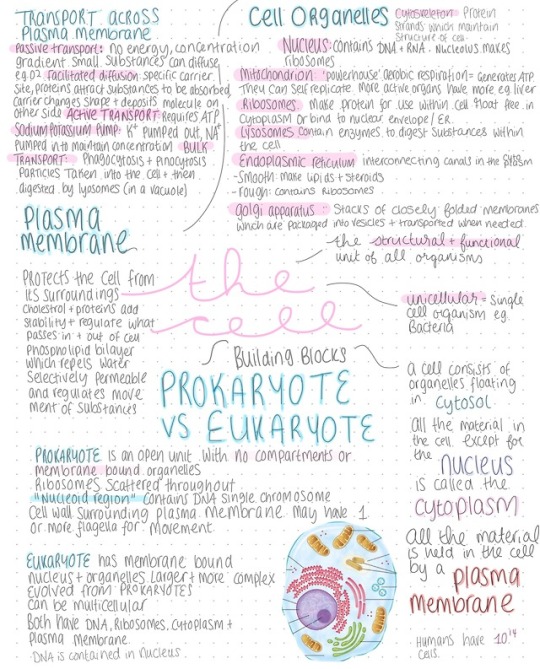 TRANSPORT ACROSS
Plasma membrane
Passive transport: no energy, concentration
gradient. Small substances can diffuse
eg O2 Facilitated diffusion: specific carrier
site, proteins attract substances to be absorbed,
carrier changes shape + deposits molecule on
other side ACTIVE TRANSPORT requires ATP
Sodium Potassium Pump: K+ pumped out, NA+
Pumped in to maintain concentration BULK
TRANSPORT: Phagocytosis + Pinocytosis
Particles taken into the cell + then
digested by lysosomes (in a vacuole)
Cell Organelles
Cytoskeleton: Protein
strands which maintain
structure of cell
Nucleus: contains DNA + RNA. Nucleolus makes
ribosomes
Mitochondrion 'powerhouse' aerobic respiration = Generates ATP
They can self replicate more active organs have more eg liver
Ribosomes: make protein for use within cell float free in
cytoplasm or bind to nuclear envelope / ER.
Lysosomes contain enzymes to digest substances within
the cell
Endoplasmic reticulum interconnecting canals in the
-Smooth: make lipids + steroids
-rough: contains ribosomes
golgi apparatus: stacks of closely folded membranes
which are packaged into vesicles + transported when needed.
Plasma
membrane
Protects the cell from
its surroundings
cholestrol + proteins add
stability + regulate what
passes in + out of cell
Phospholipid bilayer
which repels water
Selectively permeable
and regulates move
ment of substances
the
cell
the structural + functional
unit of all organisms
unicellular = single
cell organism eg.
Bacteria
Building Blocks
a cell consists of
organelles floating
in cytosol
all the material in
the cell except for
the nucleus
is called the
cytoplasm
all the material
is held in the cell
by a plasma
membrane
Humans have 10^14
cells.
PROKARYOTE
VS EUKARYOTE
PROKARYOTE is an open unit with no compartments or
membrane bound organelles
Ribosomes scattered throughout
"Nucleoid region" contains DNA single chromosome
Cell wall surrounding plasma membrane may have 1
or more flagella for movement
EUKARYOTE has membrane bound
nucleus + organelles larger + more complex
evolved from PROKARYOTES
can be multicellular
Both have DNA, Ribosomes, cytoplasm +
plasma membrane.
DNA is contained in nucleus